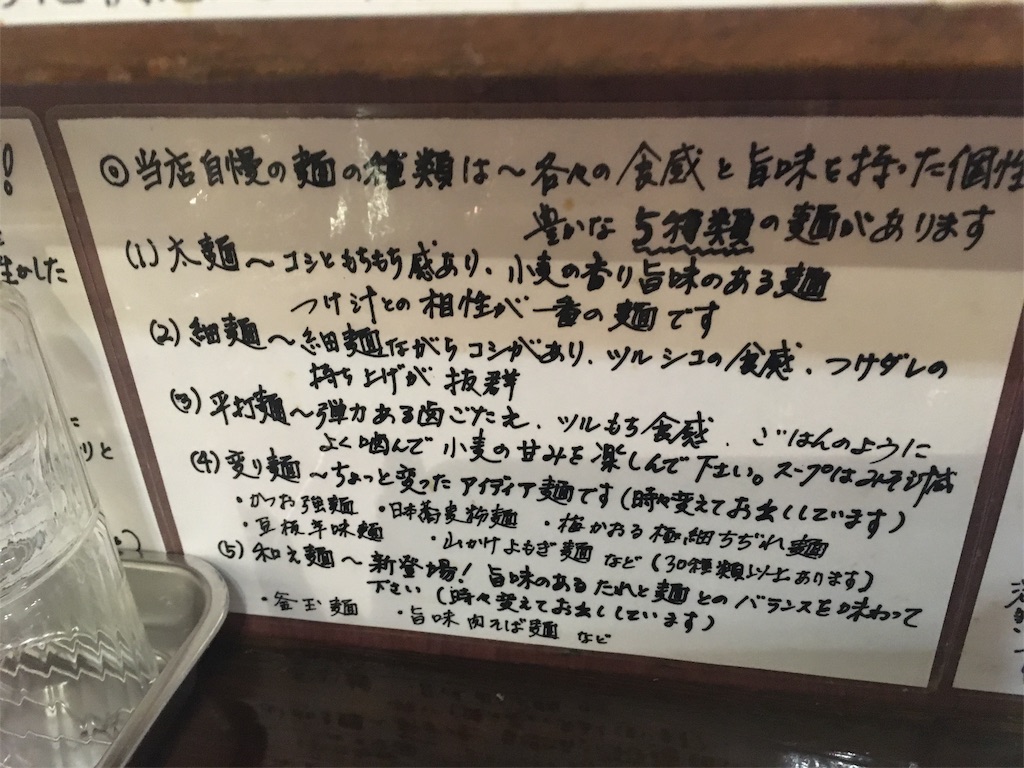 ◎当店自慢の麺の種類は～各々の食感と旨味を持った個性
豊かな5種類の麺があります
(1)太麺～コシともちもち感あり、小麦の香り旨味のある麺
つけ汁との相性が一番の麺です
(2)細麺～細麺ながらコシがあり、ツルシコの食感、つけダレの
持ち上げが抜群
(3)平打麺～弾力ある歯ごたえ、ツルもち食感、ごはんのように
よく噛んで小麦の甘みを楽しんで下さい。スープはみそ汁感
(4)変り麺～ちょっと変ったアイディア麺です(時々変えてお出ししています)
・かつお強麺 ・日本蕎麦粉麺 ・梅かおる極細ちぢれ麺
・豆板辛味麺 ・山かけよもぎ麺など(30種類以上あります)
(5)和え麺～新登場!旨味のあるたれと麺とのバランスを味わって
下さい(時々変えてお出ししています)
・釜玉麺 ・旨味肉そば麺 など
!
生かした
りと